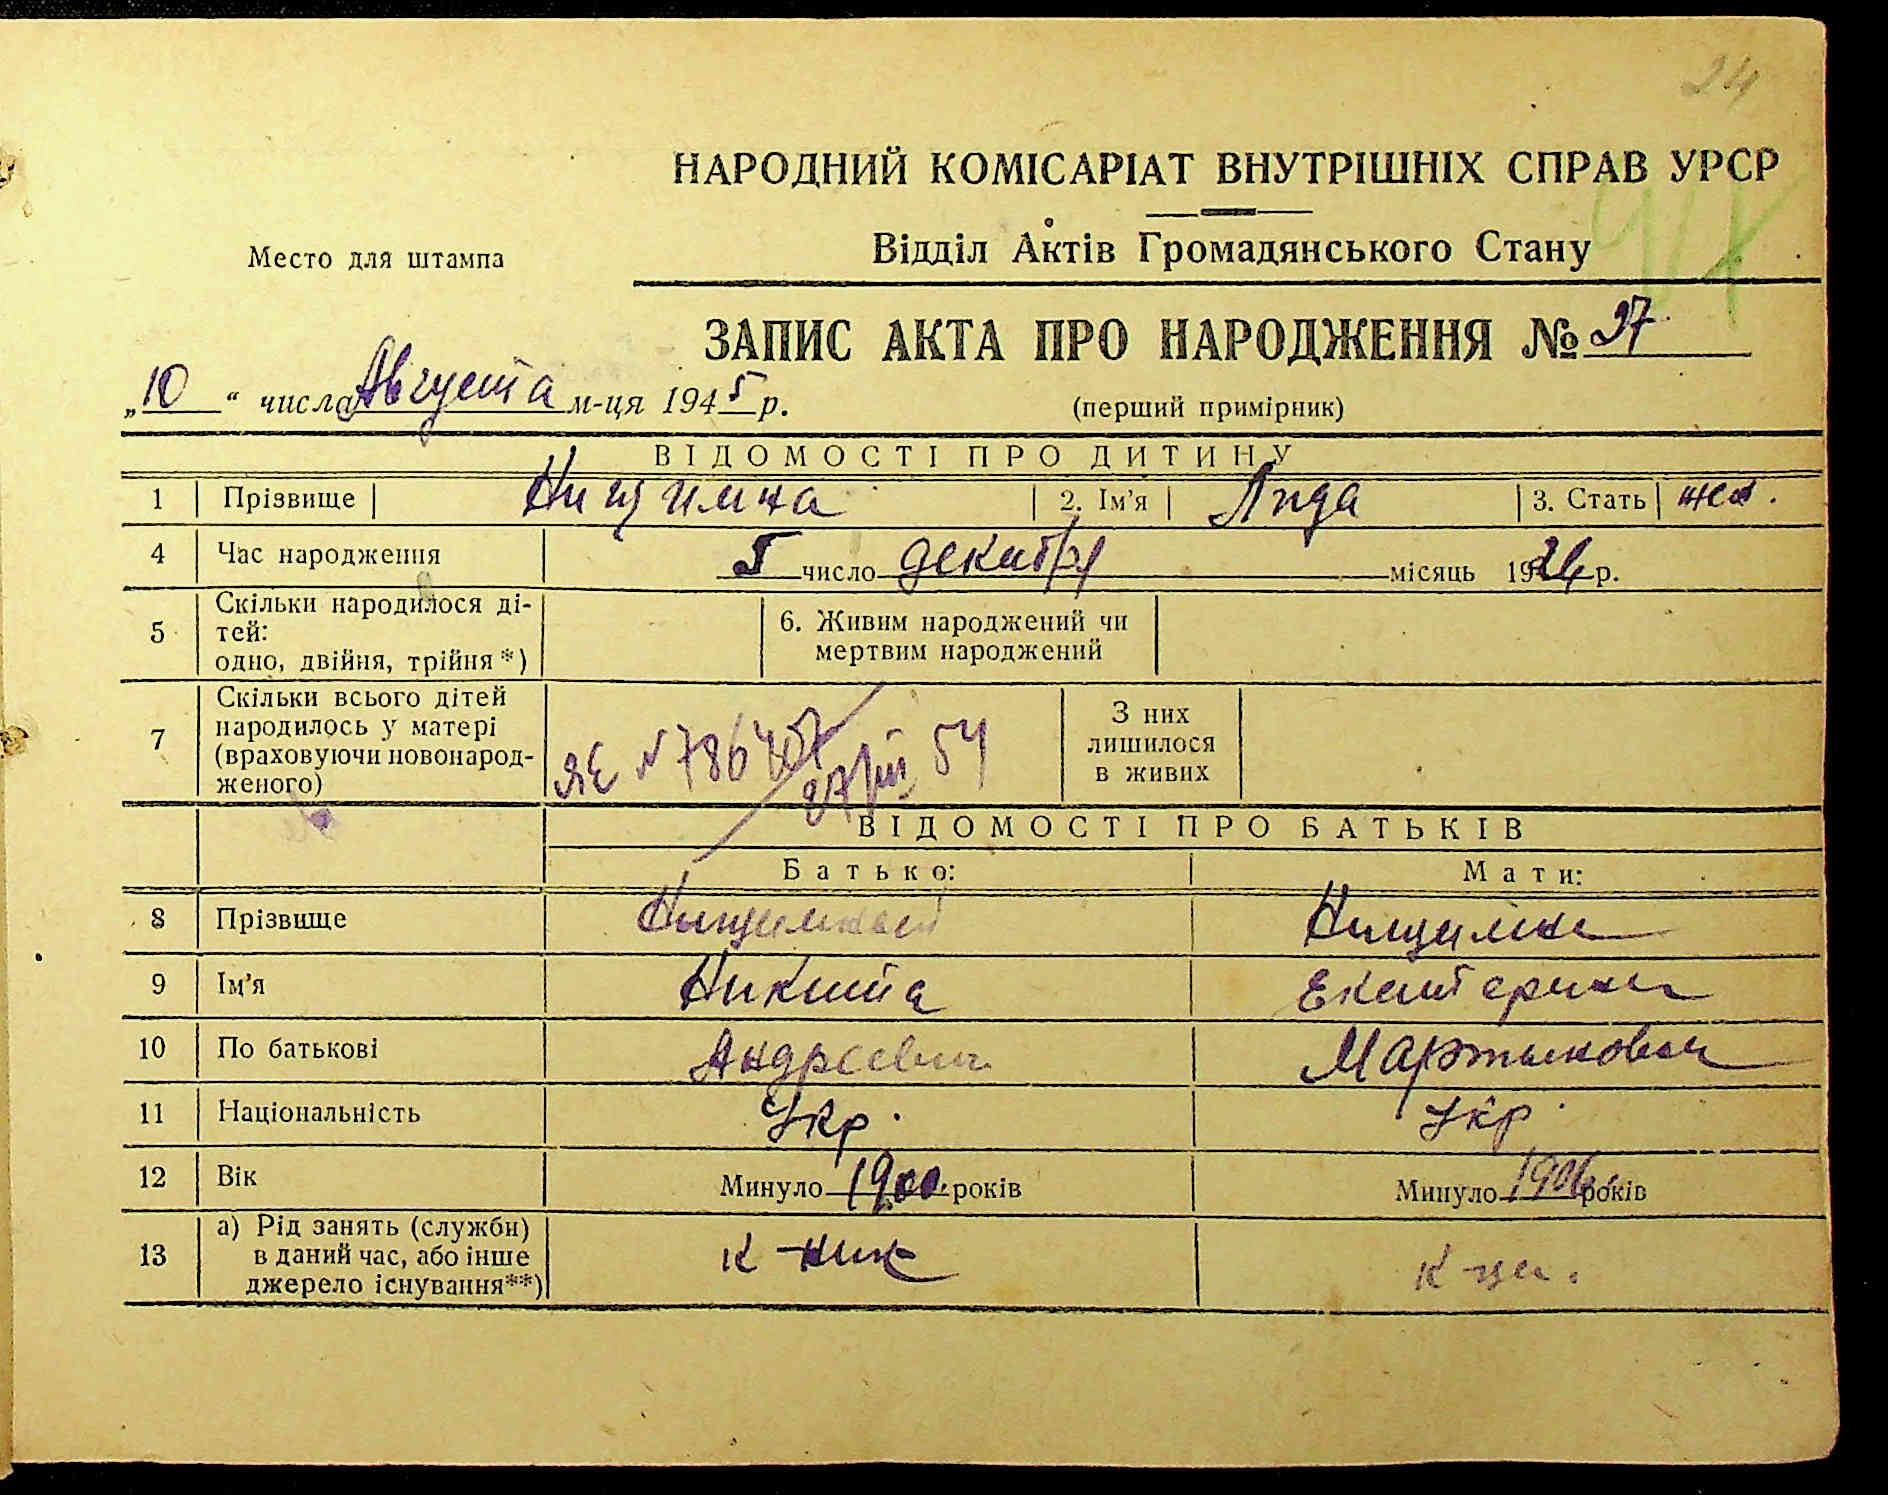 24
НАРОДНИЙ КОМІСАРІАТ ВНУТРІШНІХ СПРАВ УРСР
Место для штампа
Відділ Актів Громадянського Стану
ЗАПИС АКТА ПРО НАРОДЖЕННЯ №
„10“ числа Августа м-ця 1945 р.
(перший примірник)
ВІДОМОСТІ ПРО ДИТИНУ
1 Прізвище 2. Ім’я Лида 3. Стать жен.
4 Час народження 5 число декабря місяць р.
5 Скільки народилося ді-
тей:
одно, двійня, трійня *)
6. Живим народжений чи
мертвим народжений
7 Скільки всього дітей
народилось у матері
(враховуючи новонарод-
женого)
ЯЕ N 786407
27/VIII 54
З них
лишилося
в живих
ВІДОМОСТІ ПРО БАТЬКІВ
Батько: Мати:
8 Прізвище
9 Ім’я Никита Екатерина
10 По батькові Андреевич Мартыновна
11 Національність Укр. Укр.
12 Вік Минуло 1900 років Минуло 1906 років
13 а) Рід занять (служби)
в даний час, або інше
джерело існування**)
к-ник к-ца.